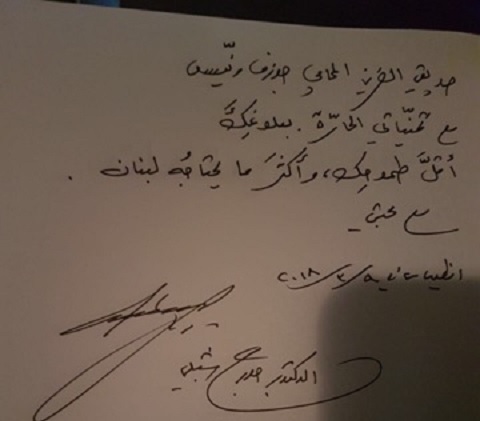 صديقي العزيز المحامي جوزف ونّيس
مع تمنّياتي الحارّة. ببلوغِكَ
أقلَّ طموحِك، وأكثرَ ما يحتاجُه لبنان.
مع محبتي
انطلياس في ٢٠١٨/٣/٩
الدكتور جورج شبلي